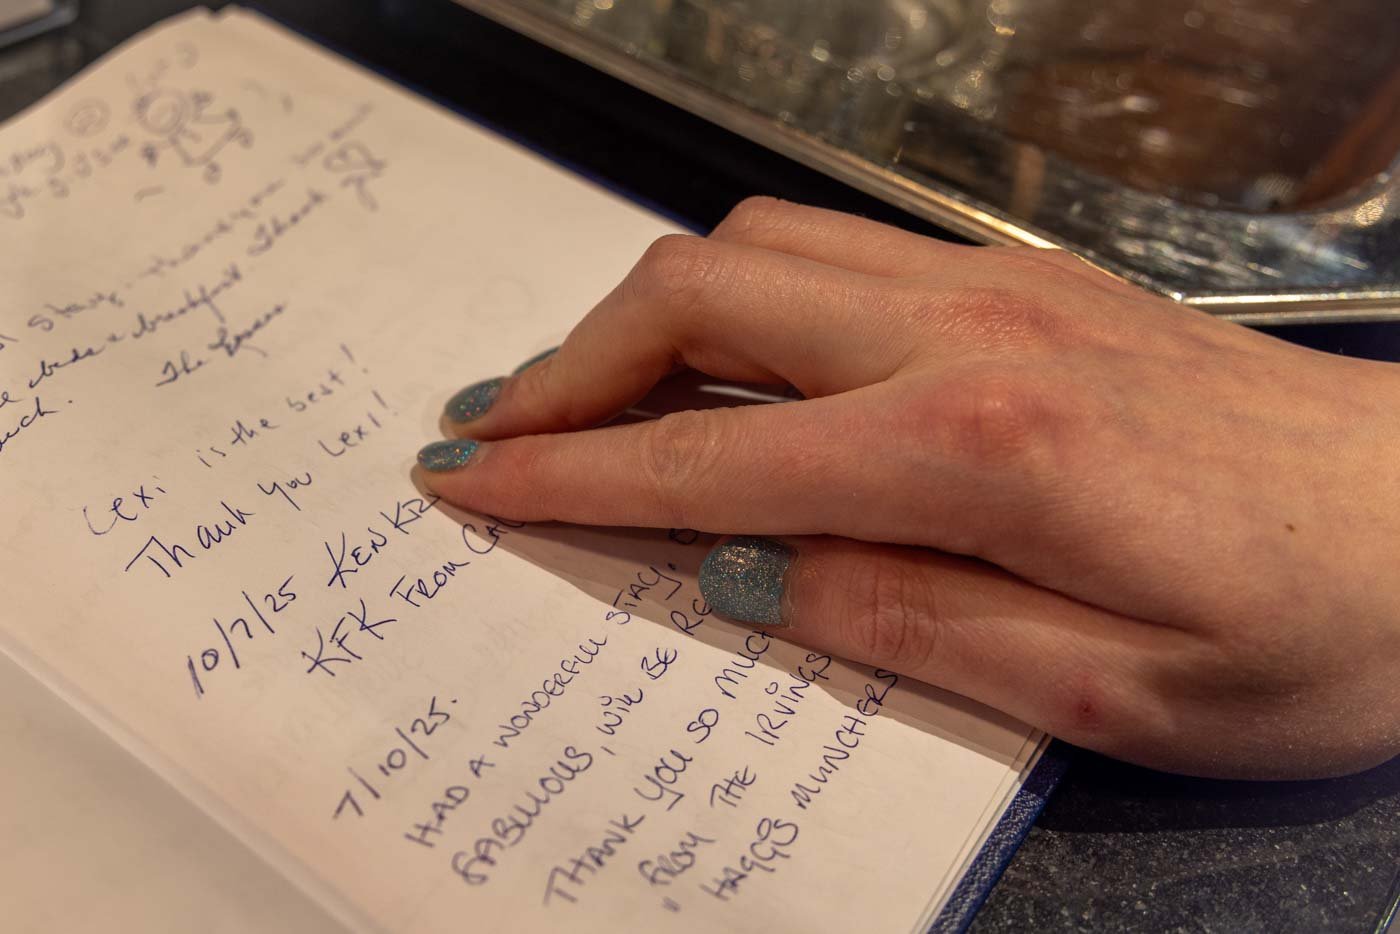 stay, thank you
beds & breakfast Thank
The
Lexi is the best!
Thank you Lexi!
10/7/25 KEN KR
KFK FROM CAL
7/10/25.
HAD A WONDERFUL STAY.
FABULOUS, WILL BE RE
THANK YOU SO MUCH
FROM THE IRVINGS
HAGGIS MUNCHERS